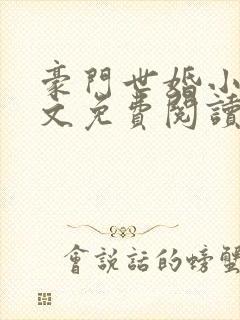 豪門世婚小
文免費閱讀
會說話的螃蟹